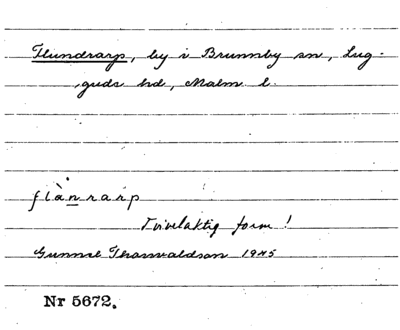 Flundrarp, by i Brunnby sn, Lug-
guds hd, Malm. l.
flànrarp
Tvivelaktig form!
Gunnel Thorwaldson 1945
Nr 5672.